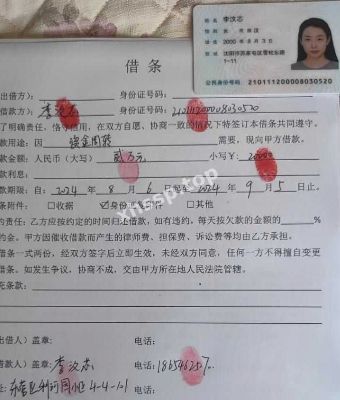 姓名 李汶志
2000年8月3日
沈阳市苏家屯区雪松东路
1-11
公民身份号码 210111200008030520
借条
出借方： 身份证号码：
借款方： 李汶志 身份证号码： 210111200008030520
了明确责任，恪守信用，在双方自愿、协商一致的情况下特签订本借条共同遵守。
款用途： 资金周转 需要，现向甲方借款。
款金额：人民币（大写） 贰万元 小写￥： 20000
款利息：
款期限：自 2024 年 8 月 6 日起至 2024 年 9 月 5 日止。
条附件：□收据 身份证复印件 □其他
约责任：乙方应按约定的时间还借款，如有违约，每天按欠款的金额的 %
约金。甲方因催收借款而产生的律师费、担保费、诉讼费等均由乙方承担。
借条一式两份，经双方签字后立即生效，未经双方同意，任何一方不得擅自变更
借条。如发生争议，协商不成，交由甲方所在地人民法院管辖。
充条款：
出借人）盖章： 电话：
借款人）盖章： 李汶志 电话：
址： 4-4-1-1 电话：